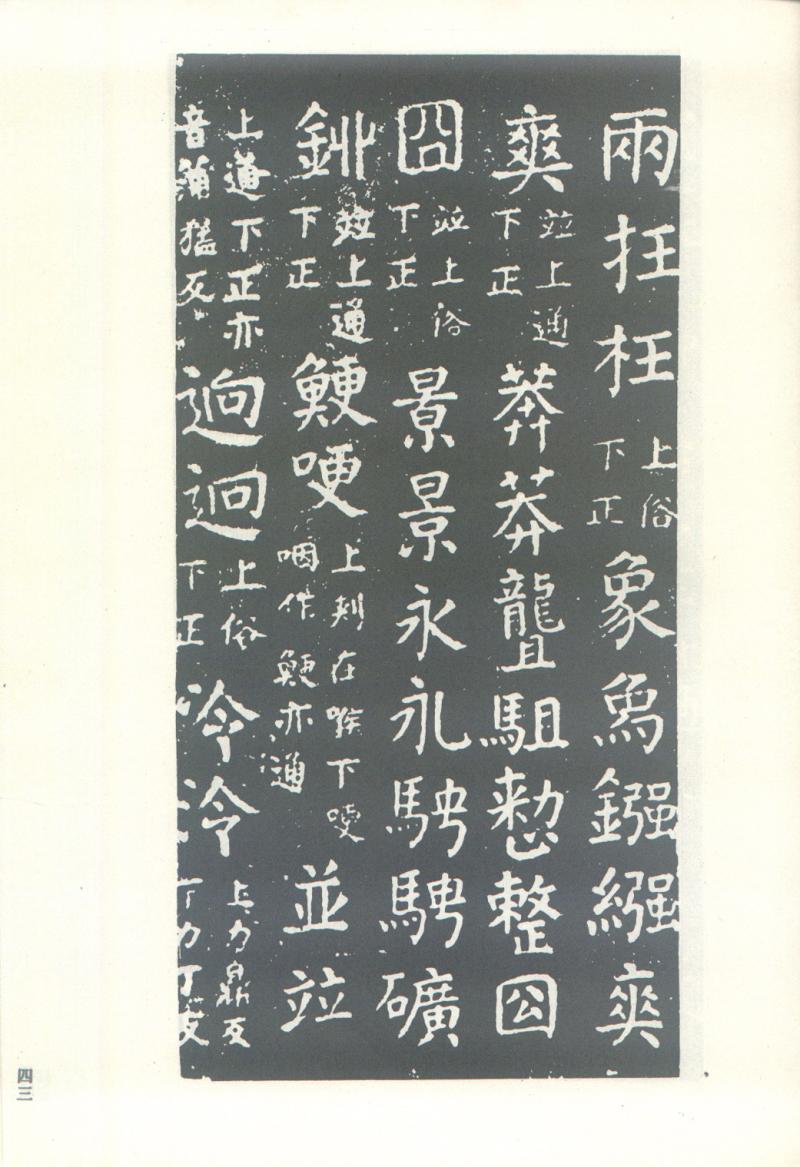 兩抂枉上俗下正象𧰼鏹繦
爽竝上通下正莽莽駔憗整囧
囧竝上俗下正景景永永騁騁礦
竝上通下正鯁哽上刺在喉下哽咽作鯁亦通並竝
上通下正亦音蒲猛反迥迥上俗下正冷泠上力鼎反下力丁反
四三